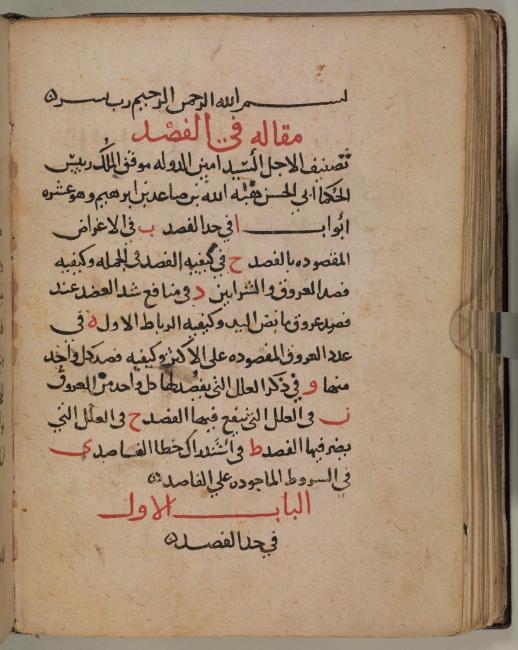 بسم الله الرحمن الرحيم رب يسر
مقاله في الفصد
تصنيف الاجل السيد امين الدوله موفق الملك رييس
الحكما ابي الحسن هبة الله بن صاعد بن ابرهيم وهو عشره
ابواب ا في حد الفصد ب في الاغراض
المقصوده بالفصد ح في كيفيه الفصد في الجمله وكيفيه
فصد العروق والشرايين د في منافع شد العضد عند
فصد عروق مابض اليد وكيفيه الرباط الاول ه في
عدد العروق المفصوده على الاكثر وكيفيه فصد كل واحد
منها و في ذكر العلل التي يفصد لها كل واحد من العروق
ز في العلل التي ينفع فيها الفصد ح في العلل التي
يضر فيها الفصد ط في استدراك خطا الفاصد ي
في الشروط الماخوده علي الفاصد
الباب الاول
في حد الفصد